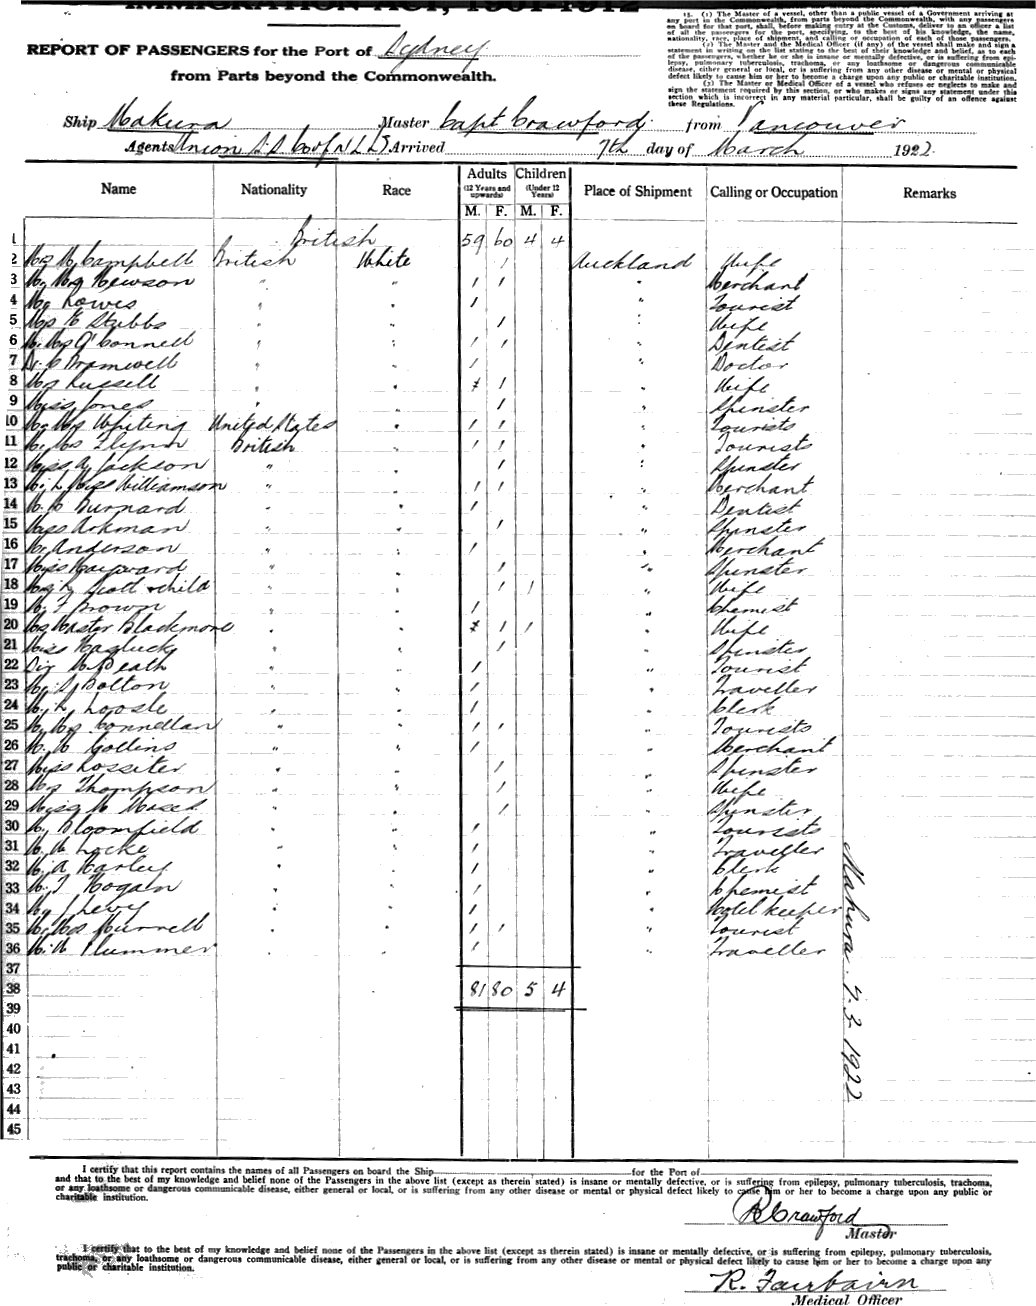 IMMIGRATION ACT, 1901-1912
REPORT OF PASSENGERS for the Port of Sydney
from Parts beyond the Commonwealth.
13. (1) The Master of a vessel, other than a public vessel of a Government arriving at
any port in the Commonwealth, from parts beyond the Commonwealth, with any passengers
on board for that port, shall, before making entry at the Customs, deliver to an officer a list
of all the passengers for the port, specifying, to the best of his knowledge, the name,
nationality, race, place of shipment, and calling or occupation of each of those passengers.
(2) The Master and the Medical Officer (if any) of the vessel shall make and sign a
statement in writing on the list stating to the best of their knowledge and belief, as to each
of the passengers, whether he or she is insane or mentally defective, or is suffering from epi-
lepsy, pulmonary tuberculosis, trachoma, or any loathsome or dangerous communicable
disease, either general or local, or is suffering from any other disease or mental or physical
defect likely to cause him or her to become a charge upon any public or charitable institution.
(3) The Master or Medical Officer of a vessel who refuses or neglects to make and
sign the statement required by this section, or who makes or signs any statement under this
section which is incorrect in any material particular, shall be guilty of an offence against
these Regulations.
Ship Makura Master Capt Crawford from Vancouver
Agents Union S.S. Co of N.Z. Ld Arrived 7th day of March 1922.
Name Nationality Race Adults (12 Years and upwards) M. F. Children (Under 12 Years) M. F. Place of Shipment Calling or Occupation Remarks
1 British 59 60 4 4
2 Mrs M Campbell British White 1 Auckland Wife
3 Mr Mrs Hewson " " 1 1 " Merchant
4 Mr Lowes " " 1 " Tourist
5 Mrs E Stubbs " " 1 " Wife
6 Mr Mrs O'Connell " " 1 1 " Dentist
7 Dr C Bramwell " " 1 " Doctor
8 Mrs Russell " " 1 " Wife
9 Miss Jones " " 1 " Spinster
10 Mr Mrs Whiting United States " 1 1 " Tourists
11 Mr Mrs Flynn British " 1 1 " Tourists
12 Miss A Jackson " " 1 " Spinster
13 Mr L Miss Williamson " " 1 1 " Merchant
14 Mr C Burnard " " 1 " Dentist
15 Miss Arkman " " 1 " Spinster
16 Mr Anderson " " 1 " Merchant
17 Miss Hayward " " 1 " Spinster
18 Mrs Scott & child " " 1 1 " Wife
19 Mr F Brown " " 1 " Chemist
20 Mrs Master Blackmore " " 1 1 " Wife
21 Miss " " 1 " Spinster
22 Death " " 1 " Tourist
23 Mr Bolton " " 1 " Traveller
24 Mr " " 1 " Clerk
25 Mr Mrs Connellan " " 1 1 " Tourists
26 Mr Collins " " 1 " Merchant
27 Miss Rossiter " " 1 " Spinster
28 Mrs Thompson " " 1 " Wife
29 Miss M " " 1 " Spinster
30 Mr Bloomfield " " 1 " Tourists
31 Mr Locke " " 1 " Traveller
32 Mr A Harley " " 1 " Clerk
33 Mr Hogain " " 1 " Chemist
34 Mr Levy " " 1 " Hotel keeper
35 Mr Mrs Murrell " " 1 1 " Tourist
36 Mr Plummer " " 1 " Traveller
37
38 81 80 5 4
39
40
41
42
43
44
45
Makura 7.3.1922
I certify that this report contains the names of all Passengers on board the Ship for the Port of
and that to the best of my knowledge and belief none of the Passengers in the above list (except as therein stated) is insane or mentally defective, or is suffering from epilepsy, pulmonary tuberculosis, trachoma,
or any loathsome or dangerous communicable disease, either general or local, or is suffering from any other disease or mental or physical defect likely to cause him or her to become a charge upon any public or
charitable institution.
Crawford
Master
I certify that to the best of my knowledge and belief none of the Passengers in the above list (except as therein stated) is insane or mentally defective, or is suffering from epilepsy, pulmonary tuberculosis,
trachoma, or any loathsome or dangerous communicable disease, either general or local, or is suffering from any other disease or mental or physical defect likely to cause him or her to become a charge upon any
public or charitable institution.
R. Fairbairn
Medical Officer